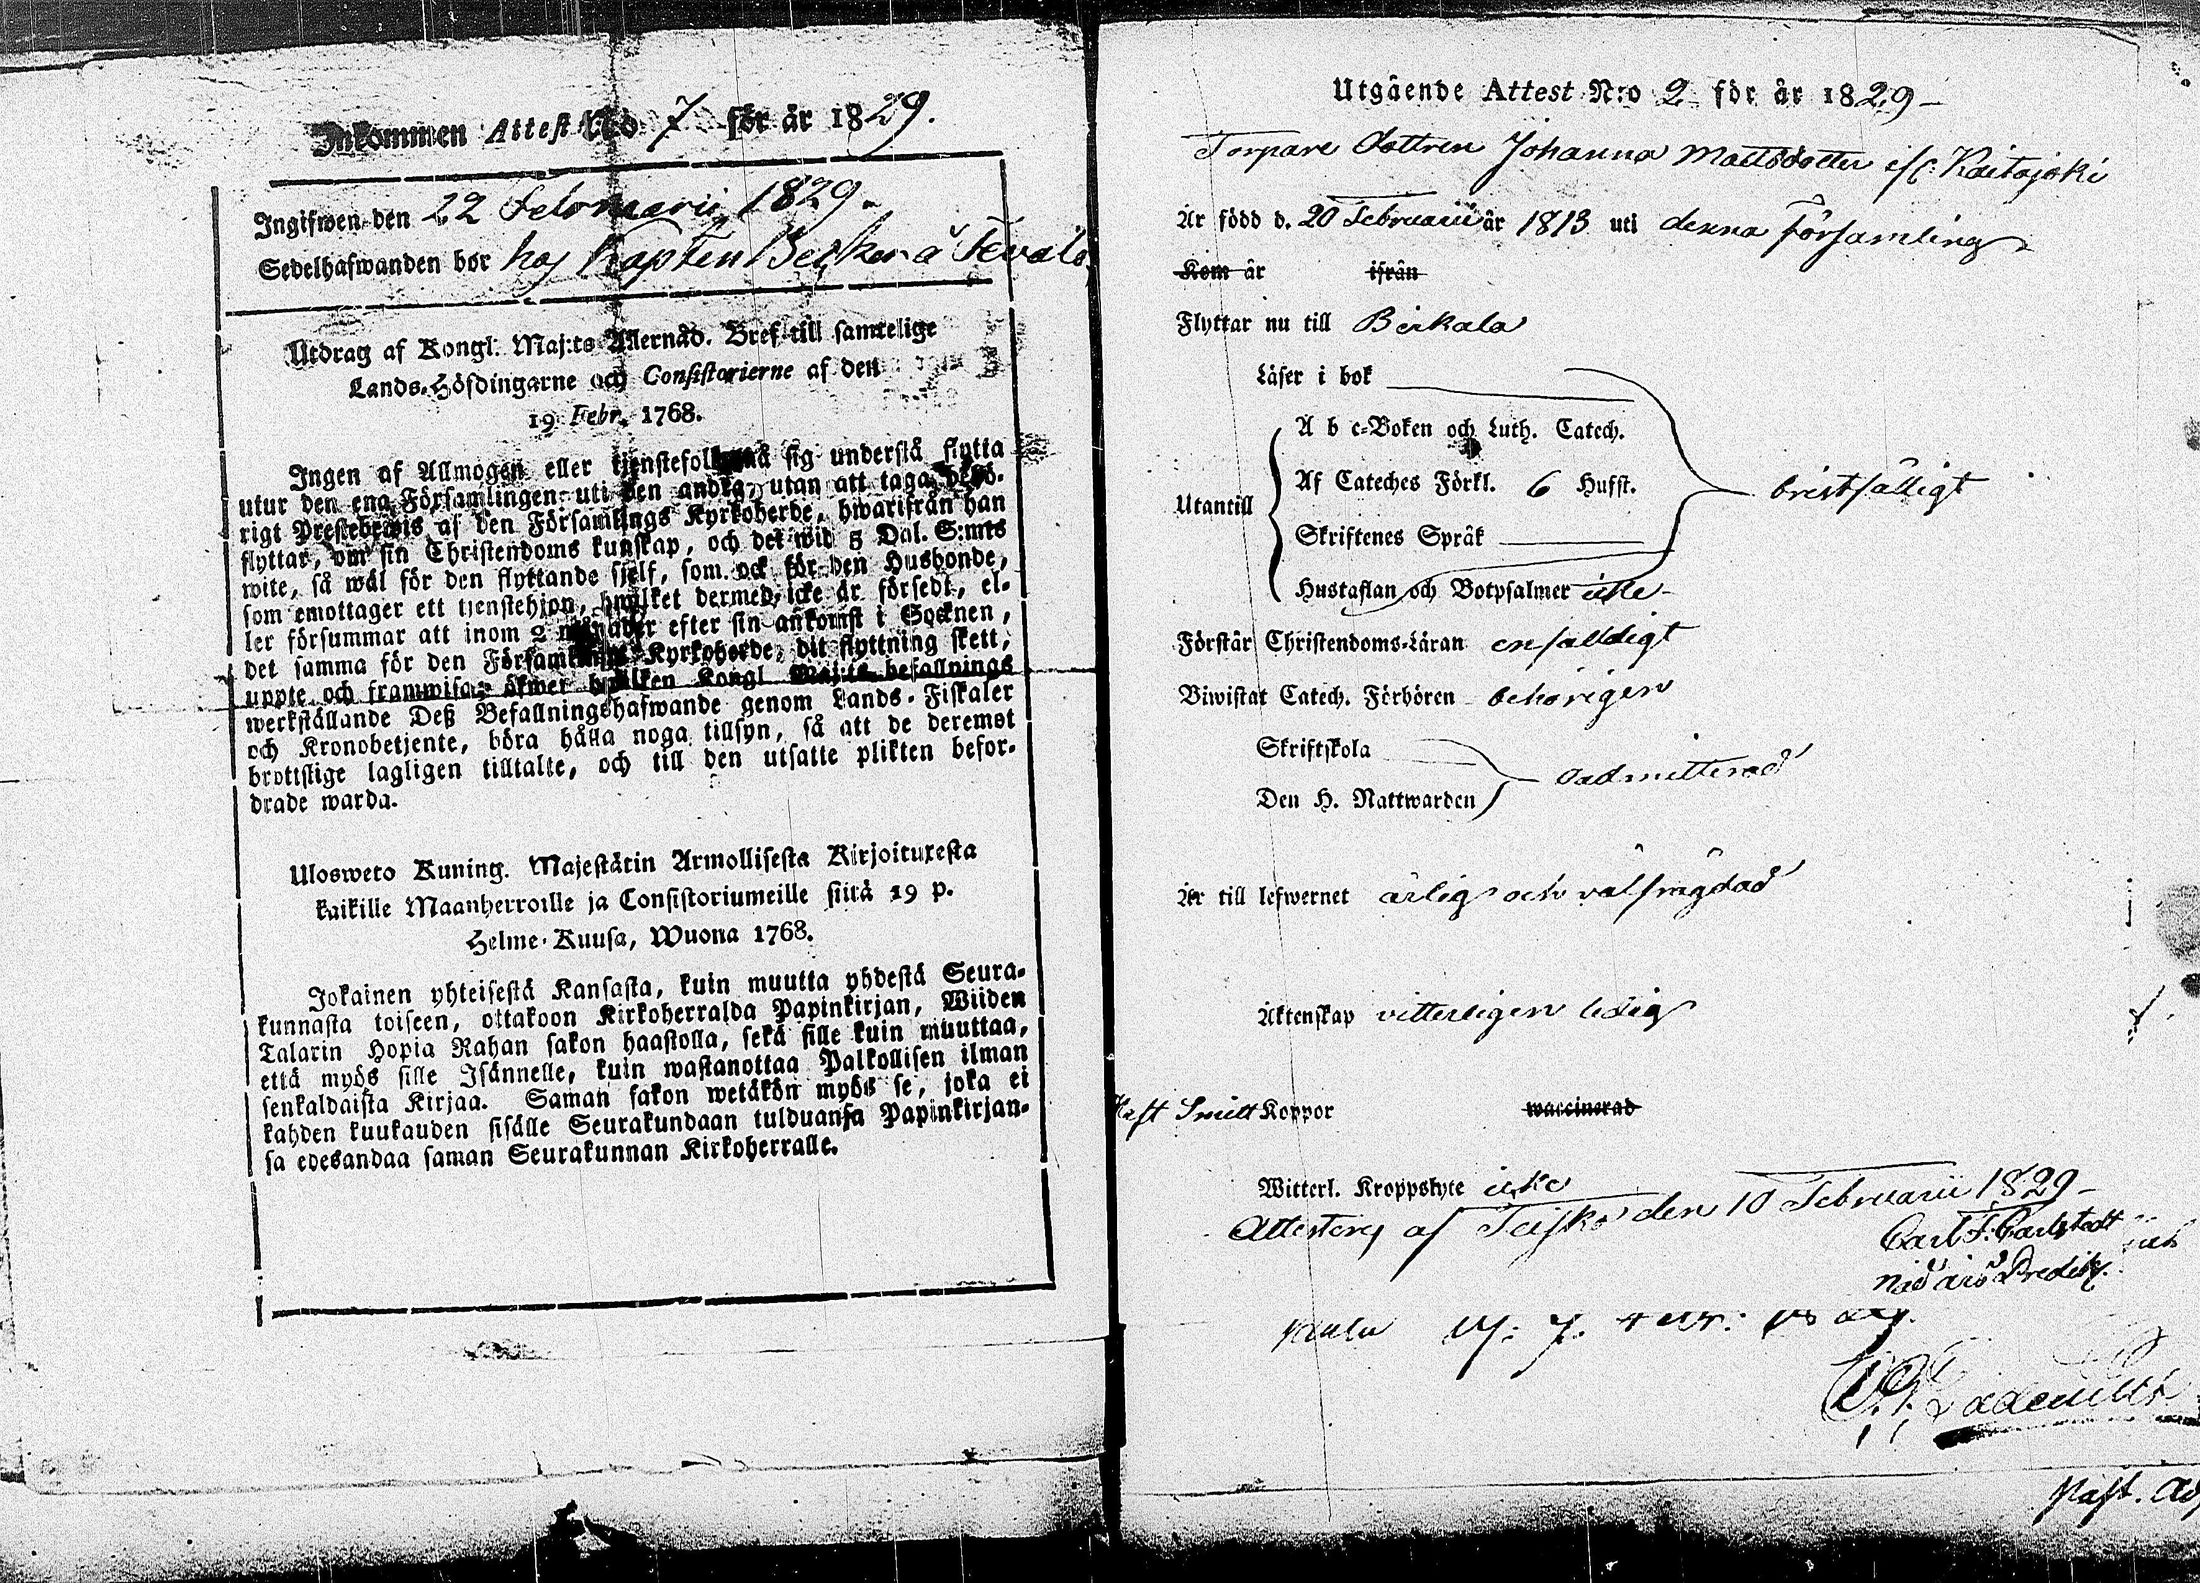 Inkommen Attest N:o 7 för år 1829.
Ingifwen den 22 Februarii 1829.
Sedelhafwanden bor hos Kapten Becker å
Utdrag af Kongl. Maj:ts Allernåd. Bref till samtelige
Lands-Höfdingarne och Consistorierne af den
19 Febr. 1768.
Ingen af Allmogen eller tjenstefolk må sig understå flytta
utur den ena Församlingen uti den andra, utan att taga behö-
rigt Prestebewis af den Församlings Kyrkoherde, hwarifrån han
flyttar, om sin Christendoms kunskap, och det wid 5 Dal. S:mts
wite, så wäl för den flyttande sjelf, som ock för den Husbonde,
som emottager ett tjenstehjon, hwilket dermed icke är försedt, el-
ler försummar att inom 2 månader efter sin ankomst i Socknen,
det samma för den Församlings Kyrkoherde, dit flyttning skett,
uppte och framwisa; öfwer hwilken Kongl. Maj:ts befallnings
werkställande Deß Befallningshafwande genom Lands-Fiskaler
och Kronobetjente, böra hålla noga tillsyn, så att de deremot
brottslige lagligen tilltalte, och till den utsatte plikten befor-
drade warda.
Ulosweto Kuning. Majestätin Armollisesta Kirjoituxesta
kaikille Maanherroille ja Consistoriumeille siitä 19 p.
Helme-Kuusa, Wuona 1768.
Jokainen yhteisestä Kansasta, kuin muutta yhdestä Seura-
kunnasta toiseen, ottakoon Kirkoherralda Papinkirjan, Wiiden
Talarin Hopia Rahan sakon haastolla, sekä sille kuin muuttaa,
että myös sille Isännelle, kuin wastanottaa Palkollisen ilman
senkaldaista Kirjaa. Saman sakon wetäkön myös se, joka ei
kahden kuukauden sisälle Seurakundaan tulduansa Papinkirjan-
sa edesandaa saman Seurakunnan Kirkoherralle.
Utgående Attest N:o 2 för år 1829
Torpare dottren Johanna Mattsdotter ifr: Kaitajoki
Är född d. 20 Februarii år 1813 uti denna Församling
Kom år ifrån
Flyttar nu till Birkala
Läser i bok
A b c-Boken och Luth. Catech.
Utantill Af Cateches Förkl. 6 Hufst. bristfälligt
Skriftenes Språk
Hustaflan och Botpsalmer icke
Förstår Christendoms-Läran enfaldigt
Biwistat Catech. Förhören behörigen
Skriftskola
oadmitterad
Den H. Nattwarden
Är till lefwernet ärlig och välfrägdad
Äktenskap vitterligen ledig
Haft Smitt Koppor waccinerad
Witterl. Kroppslyte icke
Attesteras af Teisko den 10 Februarii 1829
Carl F. Carlstedt
Nåd års Predik.
Past. Adj